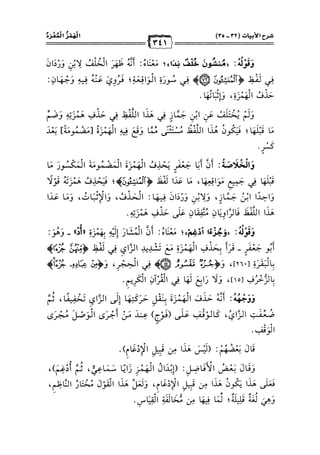 شرح الأبيات (٣٢ - ٣٥) الْهَمْزُ الْمُفْرَدُ
٣٤١
وَقَوْلُهُ: «مُنشُونَ خُلْفٌ بَدَا»؛ مَعْنَاهُ: أَنَّهُ ظَهَرَ الْخُلْفُ لِابْنِ وَرْدَانَ
فِي لَفْظِ ﴿الْمُنشِئُونَ ٧٢﴾ فِي سُورَةِ الْوَاقِعَةِ؛ فَرُوِيَ عَنْهُ فِيهِ وَجْهَانِ:
حَذْفُ الْهَمْزَةِ، وَإِثْبَاتُهَا.
وَلَمْ يُخْتَلَفْ عَنِ ابْنِ جَمَّازٍ فِي هَذَا اللَّفْظِ فِي حَذْفِ هَمْزَتِهِ وَضَمِّ
مَا قَبْلَهَا؛ فَيَكُونُ هَذَا اللَّفْظُ مُسْتَثْنًى مِمَّا وَقَعَ فِيهِ الْهَمْزَةُ [مَضْمُومَةً] بَعْدَ
كَسْرٍ.
وَالْخُلَاصَةُ: أَنَّ أَبَا جَعْفَرٍ يَحْذِفُ الْهَمْزَةَ الْمَضْمُومَةَ الْمَكْسُورَ مَا
قَبْلَهَا فِي جَمِيعِ مَوَاقِعِهَا، مَا عَدَا لَفْظَ ﴿الْمُنشِئُونَ﴾؛ فَيَحْذِفُ هَمْزَتَهُ قَوْلًا
وَاحِدًا ابْنُ جَمَّازٍ، وَلِابْنِ وَرْدَانَ فِيهَا: الْحَذْفُ، وَالْإِثْبَاتُ، وَمَا عَدَا
هَذَا اللَّفْظَ فَالرَّاوِيَانِ مُتَّفِقَانِ عَلَى حَذْفِ هَمْزِهِ.
وَقَوْلُهُ: «وَجُزْءًا ادْغِمْ»؛ مَعْنَاهُ: أَنَّ الْمُشَارَ إِلَيْهِ بِهَمْزَةِ «أُدْ» - وَهُوَ
أَبُو جَعْفَرٍ - قَرَأَ بِحَذْفِ الْهَمْزَةِ مَعَ تَشْدِيدِ الزَّايِ فِي لَفْظِ ﴿مِنْهُنَّ جُزْءًا﴾
بِالْبَقَرَةِ [٢٦٠]، وَ﴿جُزْءٌ مَّقْسُومٌ ٤٤﴾ فِي الْحِجْرِ، وَ﴿مِنْ عِبَادِهِ جُزْءًا﴾
بِالزُّخْرُفِ [١٥]، وَلَا رَابِعَ لَهَا فِي الْقُرْآنِ الْكَرِيمِ.
وَوَجْهُهُ: أَنَّهُ حَذَفَ الْهَمْزَةَ بِنَقْلِ حَرَكَتِهَا إِلَى الزَّايِ تَخْفِيفًا، ثُمَّ
ضُعِّفَتِ الزَّايُ، كَالْوَقْفِ عَلَى (فَرَجٍ) عِنْدَ مَنْ أَجْرَى الْوَصْلَ مُجْرَى
الْوَقْفِ.
قَالَ بَعْضُهُمْ: (لَيْسَ هَذَا مِن قَبِيلِ الْإِدْغَامِ).
وَقَالَ بَعْضُ الْأَفَاضِلِ: (إِبْدَالُ الْهَمْزِ زَايًا سَمَاعِيٌّ، ثُمَّ أُدْغِمَ)،
فَعَلَى هَذَا يَكُونُ هَذَا مِن قَبِيلِ الْإِدْغَامِ، وَلَعَلَّ هَذَا الْقَوْلَ مُخْتَارُ النَّاظِمِ،
وَهِيَ لُغَةٌ قَلِيلَةٌ؛ لِمَا فِيهَا مِن مُخَالَفَةِ الْقِيَاسِ.